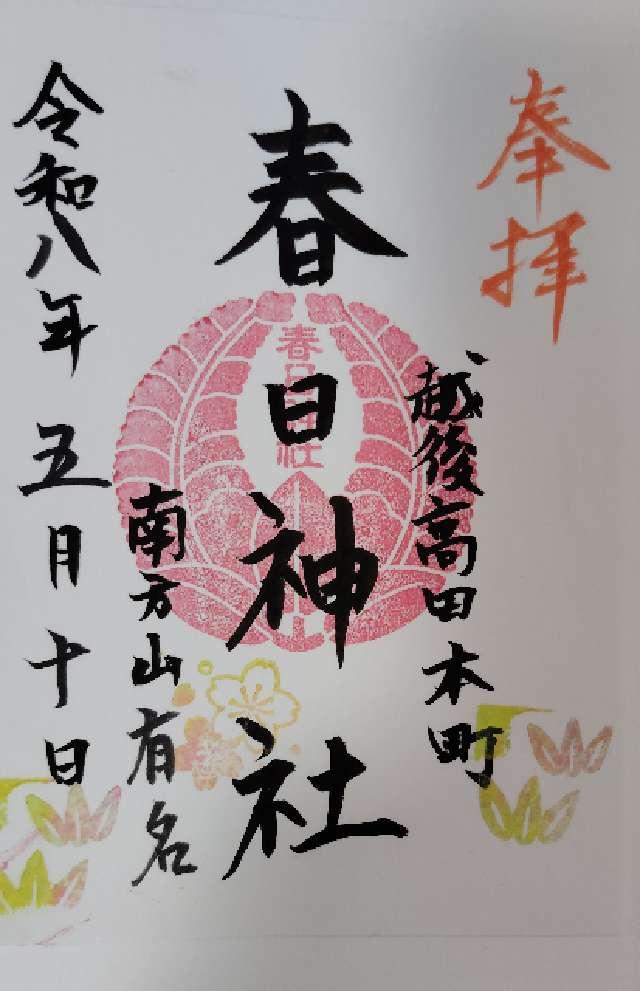 奉拝
越後高田本町
春日神社
春日神社
南方山有名
令和八年五月十日